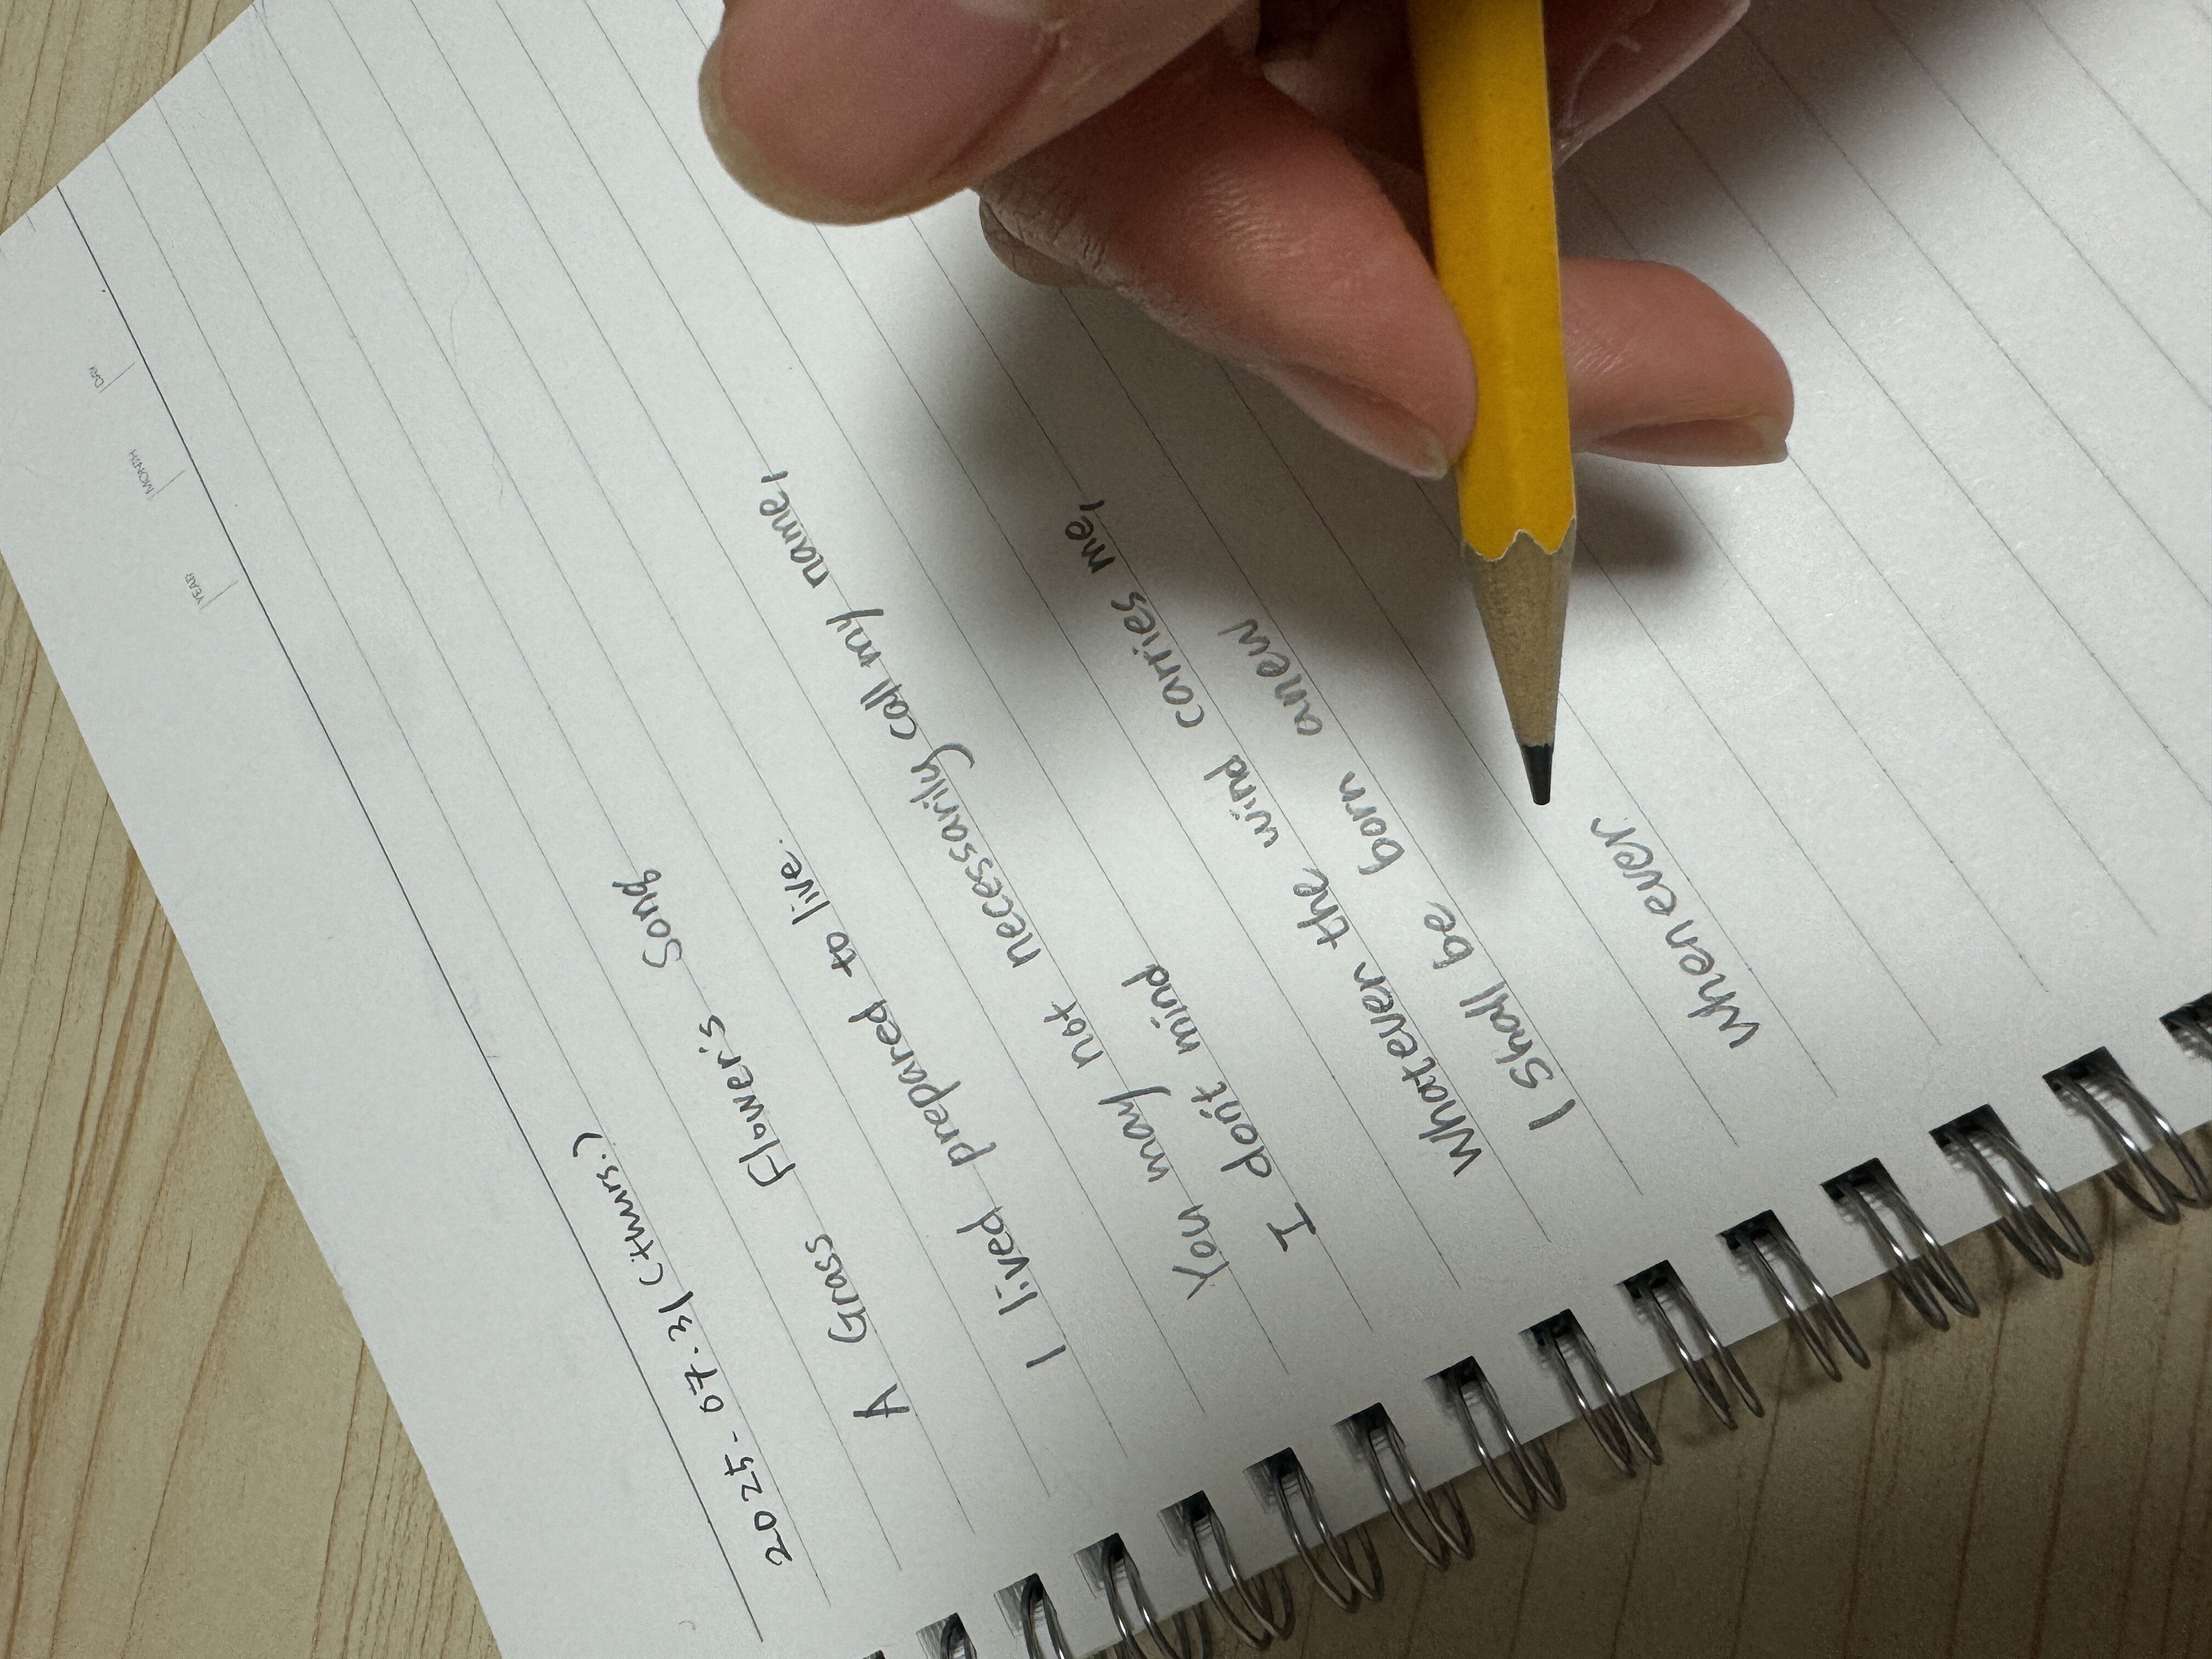 YEAR MONTH DAY
2025. 07. 31 (thurs.)
A Grass Flower's Song
I lived prepared to live.
You may not necessarily call my name,
I don't mind
Whatever the wind carries me,
I shall be born anew
Whenever